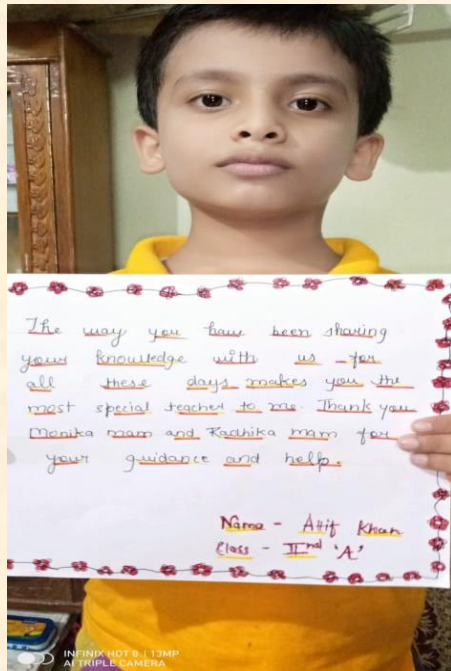 The way you have been sharing
your knowledge with us for
all these days makes you the
most special teacher to me. Thank you
Monika mam and Radhika mam for
your guidance and help.
Name - Atif Khan
Class - IInd 'A'
INFINIX HOT 8 | 13MP
AI TRIPLE CAMERA